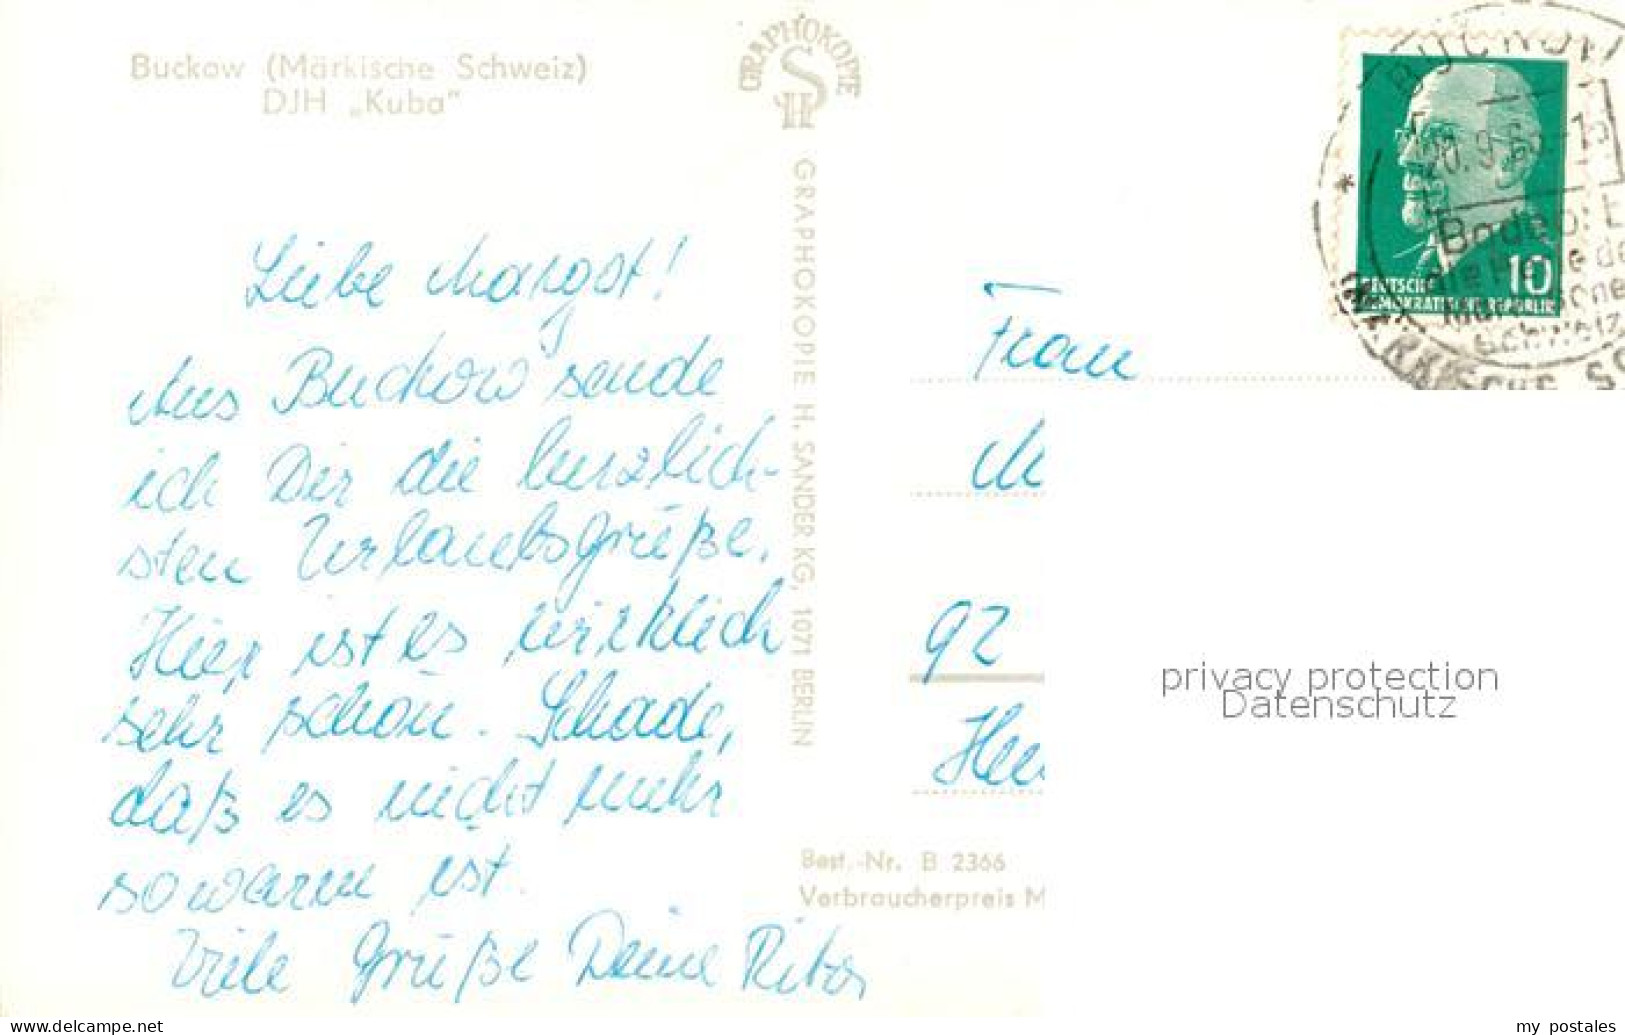 Buckow (Märkische Schweiz)
DJH „Kuba"
GRAPHOKOPIE
H S
GRAPHOKOPIE H. SANDER KG, 1071 BERLIN
Liebe Margot!
Aus Buckow sende
ich Dir die herzlich-
sten Urlaubsgrüße.
Hier ist es wirklich
sehr schön. Schade,
daß es nicht mehr
so warm ist.
Viele Grüße Deine Rita
BUCKOW
20.9.6
Badeort
Perle de
Märkische
Schweiz
MÄRKISCHE SC
10
DEUTSCHE
DEMOKRATISCHE REPUBLIK
Frau
M
92
Heu
Best.-Nr. B 2366
Verbraucherpreis M
privacy protection
Datenschutz
www.delcampe.net
my postales